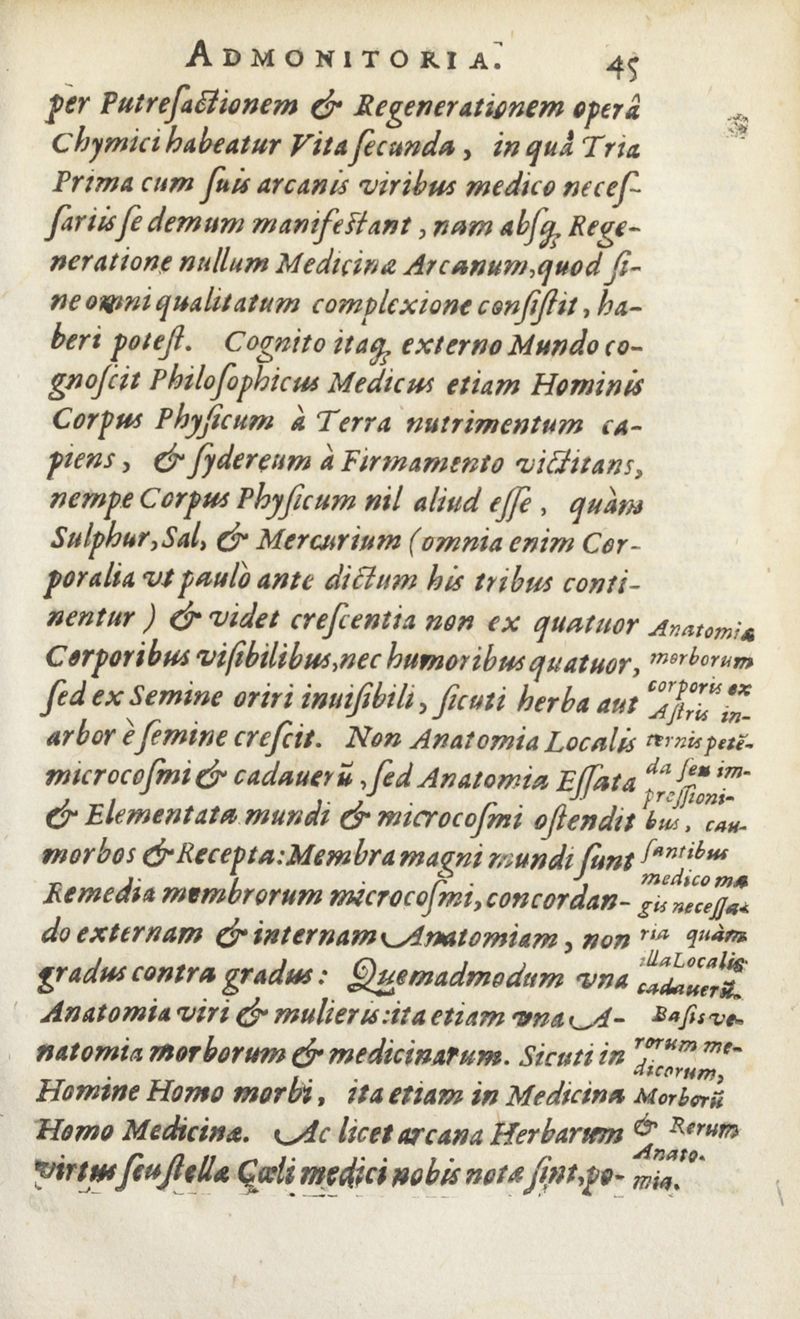 ADMONITORIA. 45
per Putrefactionem & Regenerationem operâ
Chymici habeatur Vita ſecunda, in quâ Tria
Prima cum ſuis arcanis viribus medico neceſ-
ſariis ſe demum manifeſtant, nam abſq; Rege-
neratione nullum Medicinæ Arcanum, quod ſi-
ne omni qualitatum complexione conſiſtit, ha-
beri poteſt. Cognito itaq; externo Mundo co-
gnoſcit Philoſophicus Medicus etiam Hominis
Corpus Phyſicum à Terra nutrimentum ca-
piens, & ſydereum à Firmamento victitans,
nempe Corpus Phyſicum nil aliud eſſe, quàm
Sulphur, Sal, & Mercurium (omnia enim Cor-
poralia vt paulò ante dictum his tribus conti-
nentur) & videt creſcentia non ex quatuor
Corporibus viſibilibus, nec humoribus quatuor,
ſed ex Semine oriri inuiſibili, ſicuti herba aut
arbor è ſemine creſcit. Non Anatomia Localis
microcoſmi & cadauerū, ſed Anatomia Eſſata
& Elementata mundi & microcoſmi oſtendit
morbos & Recepta: Membra magni mundi ſunt
Remedia membrorum microcoſmi, concordan-
do externam & internam Anatomiam, non
gradus contra gradus: Quemadmodum vna
Anatomia viri & mulieris: ita etiam vna A-
natomia morborum & medicinarum. Sicuti in
Homine Homo morbi, ita etiam in Medicina
Homo Medicinæ. Ac licet arcana Herbarum
virtus ſeu ſtella Cœli medici nobis nota ſint, po-
Anatomia
morborum
corporis ex
Aſtris in-
ternis petē-
da ſeu im-
preſſioni-
bus, cau-
ſantibus
medico ma
gis neceſſa-
ria quàm
illa Localis
cadauerū.
Baſis ve-
rorum me-
dicorum,
Morborū
& Rerum
Anato-
mia.